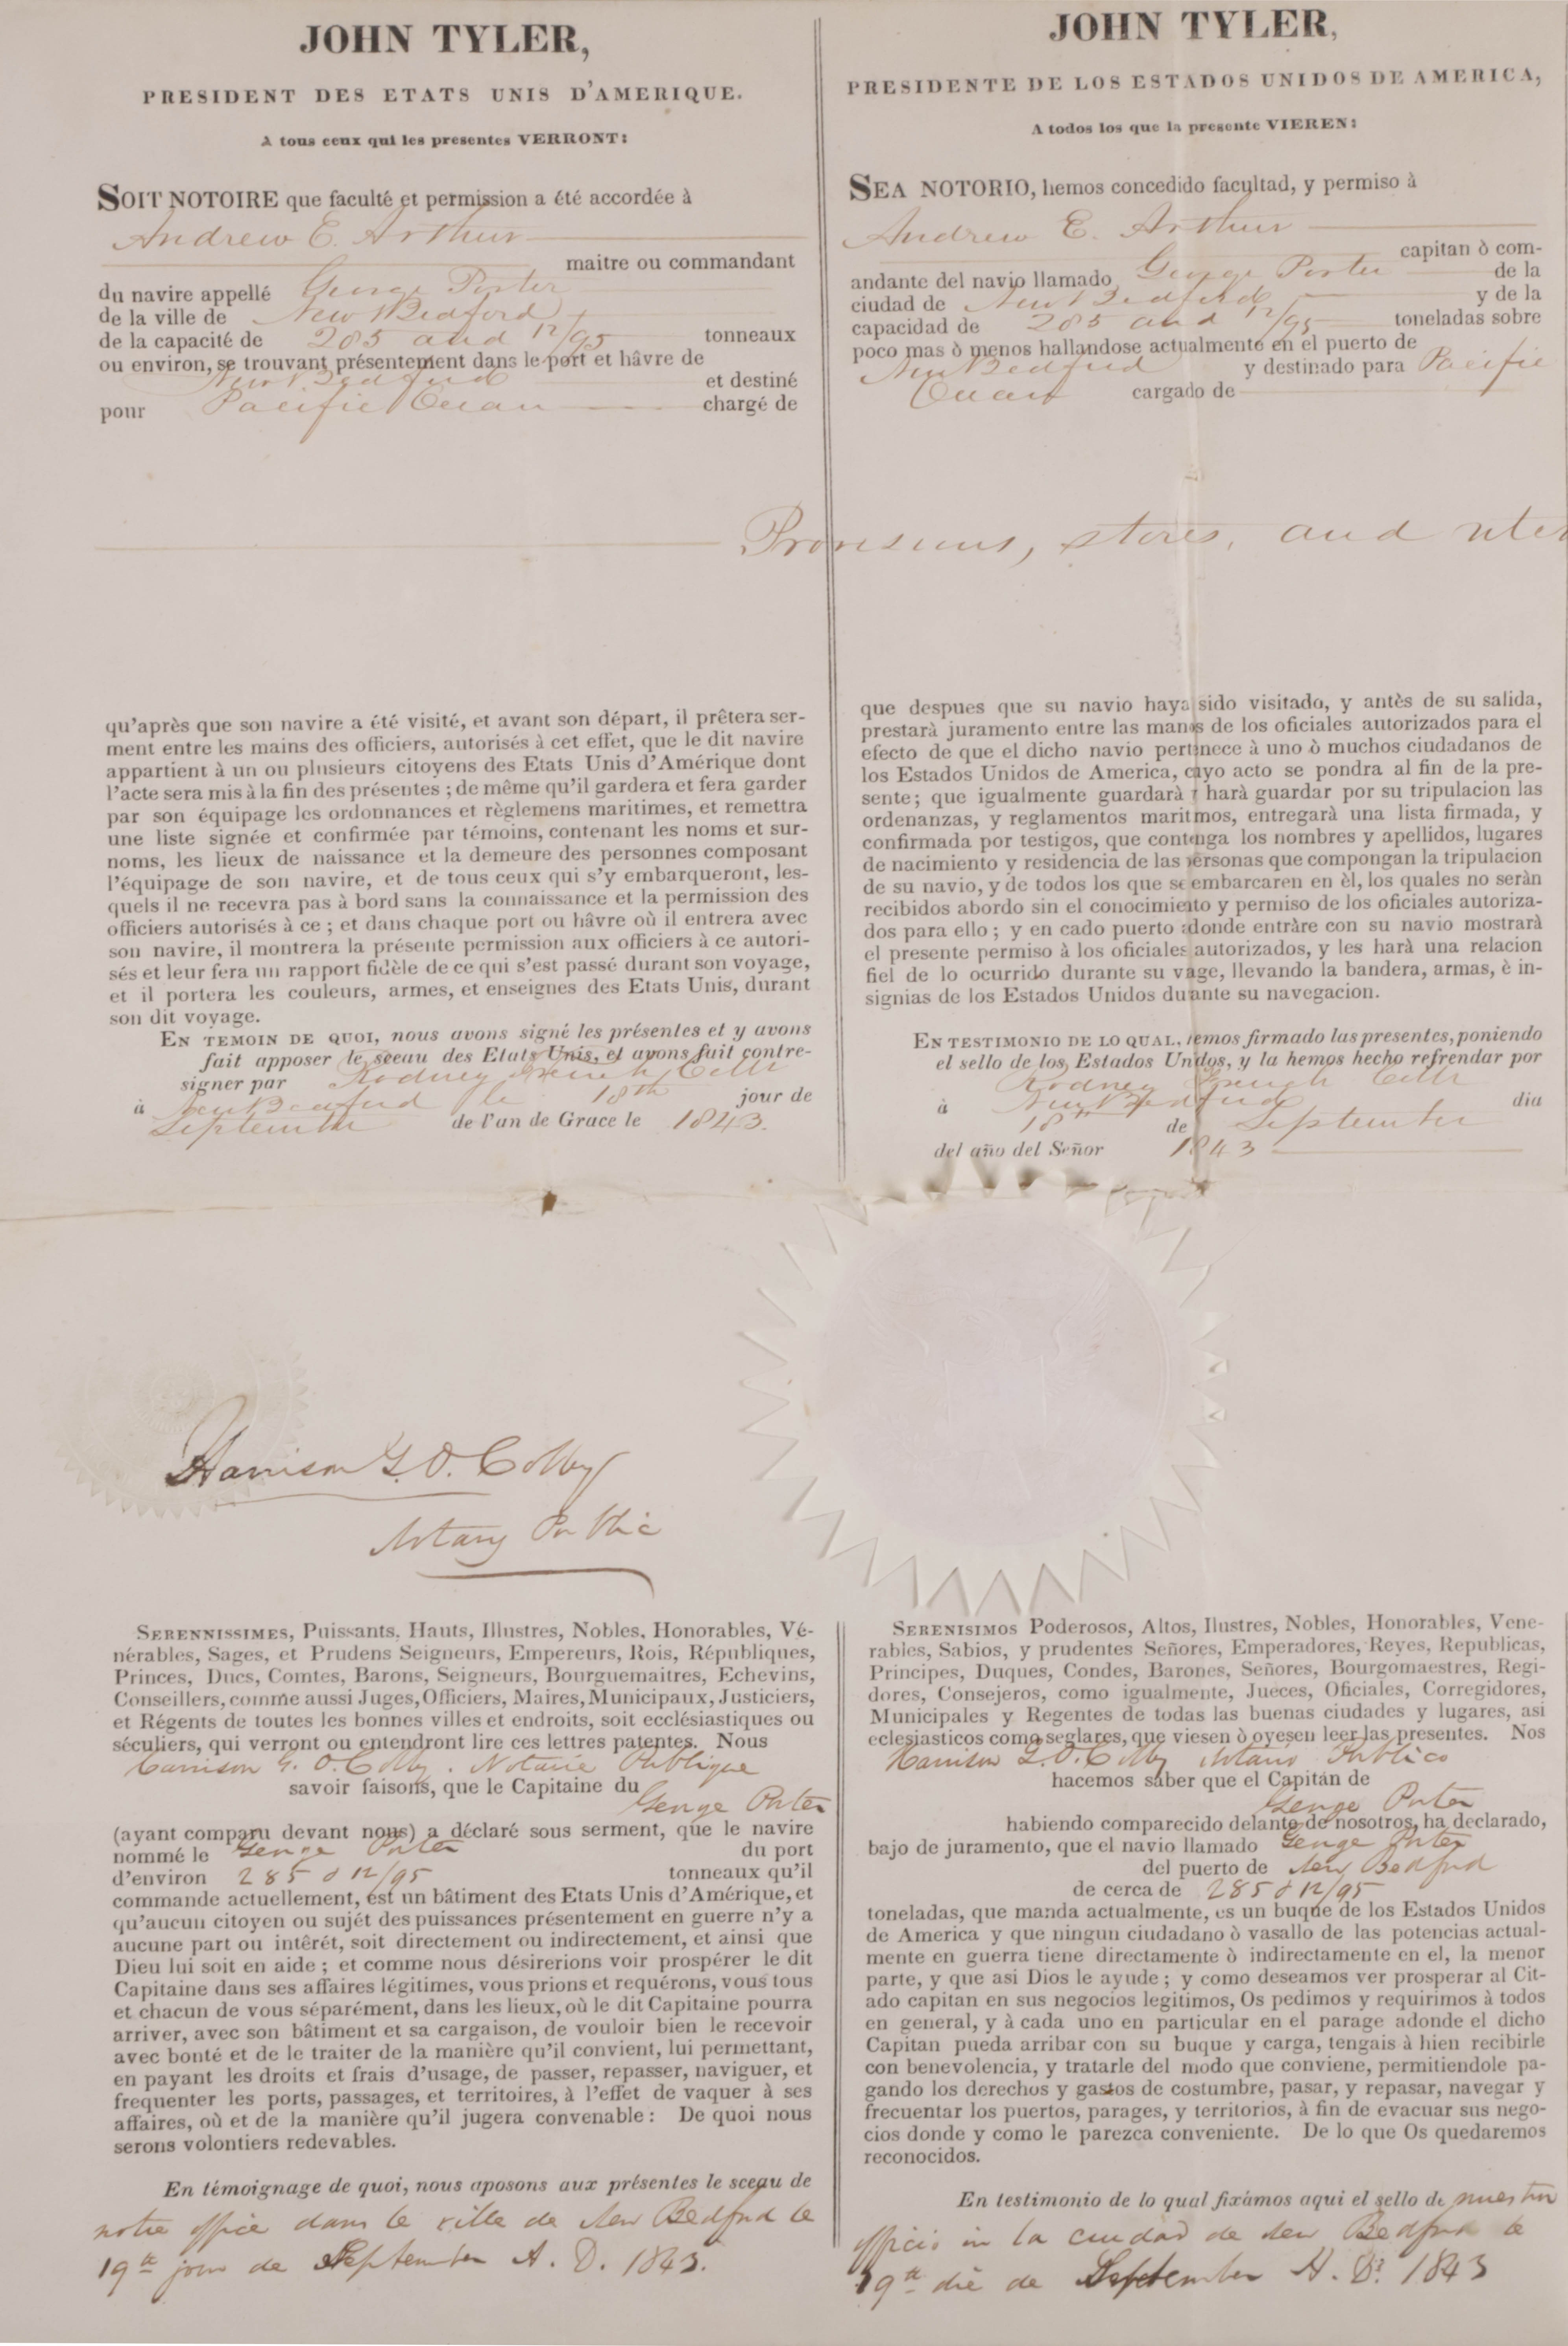 JOHN TYLER,
PRESIDENT DES ETATS UNIS D'AMERIQUE.
A tous ceux qui les presentes VERRONT:
SOIT NOTOIRE que faculté et permission a été accordée à
Andrew E. Arthur
maitre ou commandant
du navire appellé George Porter
de la ville de New Bedford
de la capacité de 285 and 12/95 tonneaux
ou environ, se trouvant présentement dans le port et hâvre de
New Bedford et destiné
pour Pacific Ocean chargé de
Provisions, stores, and uten
qu'après que son navire a été visité, et avant son départ, il prêtera ser-
ment entre les mains des officiers, autorisés à cet effet, que le dit navire
appartient à un ou plusieurs citoyens des Etats Unis d'Amérique dont
l'acte sera mis à la fin des présentes ; de même qu'il gardera et fera garder
par son équipage les ordonnances et règlemens maritimes, et remettra
une liste signée et confirmée par témoins, contenant les noms et sur-
noms, les lieux de naissance et la demeure des personnes composant
l'équipage de son navire, et de tous ceux qui s'y embarqueront, les-
quels il ne recevra pas à bord sans la connaissance et la permission des
officiers autorisés à ce ; et dans chaque port ou hâvre où il entrera avec
son navire, il montrera la présente permission aux officiers à ce autori-
sés et leur fera un rapport fidèle de ce qui s'est passé durant son voyage,
et il portera les couleurs, armes, et enseignes des Etats Unis, durant
son dit voyage.
EN TEMOIN DE QUOI, nous avons signé les présentes et y avons
fait apposer le sceau des Etats Unis, et avons fait contre-
signer par Rodney French Collr
à New Bedford le 18th jour de
September de l'an de Grace le 1843.
JOHN TYLER,
PRESIDENTE DE LOS ESTADOS UNIDOS DE AMERICA,
A todos los que la presente VIEREN:
SEA NOTORIO, hemos concedido facultad, y permiso à
Andrew E. Arthur
capitan ò com-
andante del navio llamado George Porter de la
ciudad de New Bedford y de la
capacidad de 285 and 12/95 toneladas sobre
poco mas ò menos hallandose actualmente en el puerto de
New Bedford y destinado para Pacific
Ocean cargado de
que despues que su navio haya sido visitado, y antès de su salida,
prestarà juramento entre las manos de los oficiales autorizados para el
efecto de que el dicho navio pertenece à uno ò muchos ciudadanos de
los Estados Unidos de America, cuyo acto se pondra al fin de la pre-
sente; que igualmente guardarà y harà guardar por su tripulacion las
ordenanzas, y reglamentos maritmos, entregarà una lista firmada, y
confirmada por testigos, que contenga los nombres y apellidos, lugares
de nacimiento y residencia de las personas que compongan la tripulacion
de su navio, y de todos los que se embarcaren en èl, los quales no seràn
recibidos abordo sin el conocimiento y permiso de los oficiales autoriza-
dos para ello ; y en cado puerto adonde entràre con su navio mostrarà
el presente permiso à los oficiales autorizados, y les harà una relacion
fiel de lo ocurrido durante su vage, llevando la bandera, armas, è in-
signias de los Estados Unidos durante su navegacion.
EN TESTIMONIO DE LO QUAL, hemos firmado las presentes, poniendo
el sello de los Estados Unidos, y la hemos hecho refrendar por
Rodney French Collr
à New Bedford dia
18th de September
del año del Señor 1843
Harrison G. O. Colby
Notary Public
SERENNISSIMES, Puissants, Hauts, Illustres, Nobles, Honorables, Vé-
nérables, Sages, et Prudens Seigneurs, Empereurs, Rois, Républiques,
Princes, Ducs, Comtes, Barons, Seigneurs, Bourguemaitres, Echevins,
Conseillers, comme aussi Juges, Officiers, Maires, Municipaux, Justiciers,
et Régents de toutes les bonnes villes et endroits, soit ecclésiastiques ou
séculiers, qui verront ou entendront lire ces lettres patentes. Nous
Harrison G. O. Colby. Notarie Publique
savoir faisons, que le Capitaine du
George Porter
(ayant comparu devant nous) a déclaré sous serment, que le navire
nommé le George Porter du port
d'environ 285 & 12/95 tonneaux qu'il
commande actuellement, est un bâtiment des Etats Unis d'Amérique, et
qu'aucun citoyen ou sujét des puissances présentement en guerre n'y a
aucune part ou intérét, soit directement ou indirectement, et ainsi que
Dieu lui soit en aide ; et comme nous désirerions voir prospérer le dit
Capitaine dans ses affaires légitimes, vous prions et requérons, vous tous
et chacun de vous séparément, dans les lieux, où le dit Capitaine pourra
arriver, avec son bâtiment et sa cargaison, de vouloir bien le recevoir
avec bonté et de le traiter de la manière qu'il convient, lui permettant,
en payant les droits et frais d'usage, de passer, repasser, naviguer, et
frequenter les ports, passages, et territoires, à l'effet de vaquer à ses
affaires, où et de la manière qu'il jugera convenable : De quoi nous
serons volontiers redevables.
En témoignage de quoi, nous aposons aux présentes le sceau de
notre office dans le ville de New Bedford le
19th jour de September A. D. 1843.
SERENISIMOS Poderosos, Altos, Ilustres, Nobles, Honorables, Vene-
rables, Sabios, y prudentes Señores, Emperadores, Reyes, Republicas,
Principes, Duques, Condes, Barones, Señores, Bourgomaestres, Regi-
dores, Consejeros, como igualmente, Jueces, Oficiales, Corregidores,
Municipales y Regentes de todas las buenas ciudades y lugares, asi
eclesiasticos como seglares, que viesen ò oyesen leer las presentes. Nos
Harrison G. O. Colby Notario Publico
hacemos saber que el Capitán de
George Porter
habiendo comparecido delante de nosotros, ha declarado,
bajo de juramento, que el navio llamado George Porter
del puerto de New Bedford
de cerca de 285 & 12/95
toneladas, que manda actualmente, es un buque de los Estados Unidos
de America y que ningun ciudadano ò vasallo de las potencias actual-
mente en guerra tiene directamente ò indirectamente en el, la menor
parte, y que asi Dios le ayude ; y como deseamos ver prosperar al Cit-
ado capitan en sus negocios legitimos, Os pedimos y requirimos à todos
en general, y à cada uno en particular en el parage adonde el dicho
Capitan pueda arribar con su buque y carga, tengais à hien recibirle
con benevolencia, y tratarle del modo que conviene, permitiendole pa-
gando los derechos y gastos de costumbre, pasar, y repasar, navegar y
frecuentar los puertos, parages, y territorios, à fin de evacuar sus nego-
cios donde y como le parezca conveniente. De lo que Os quedaremos
reconocidos.
En testimonio de lo qual fixámos aqui el sello de nuestro
officio in la ciudad de New Bedford le
19th die de September A. D. 1843